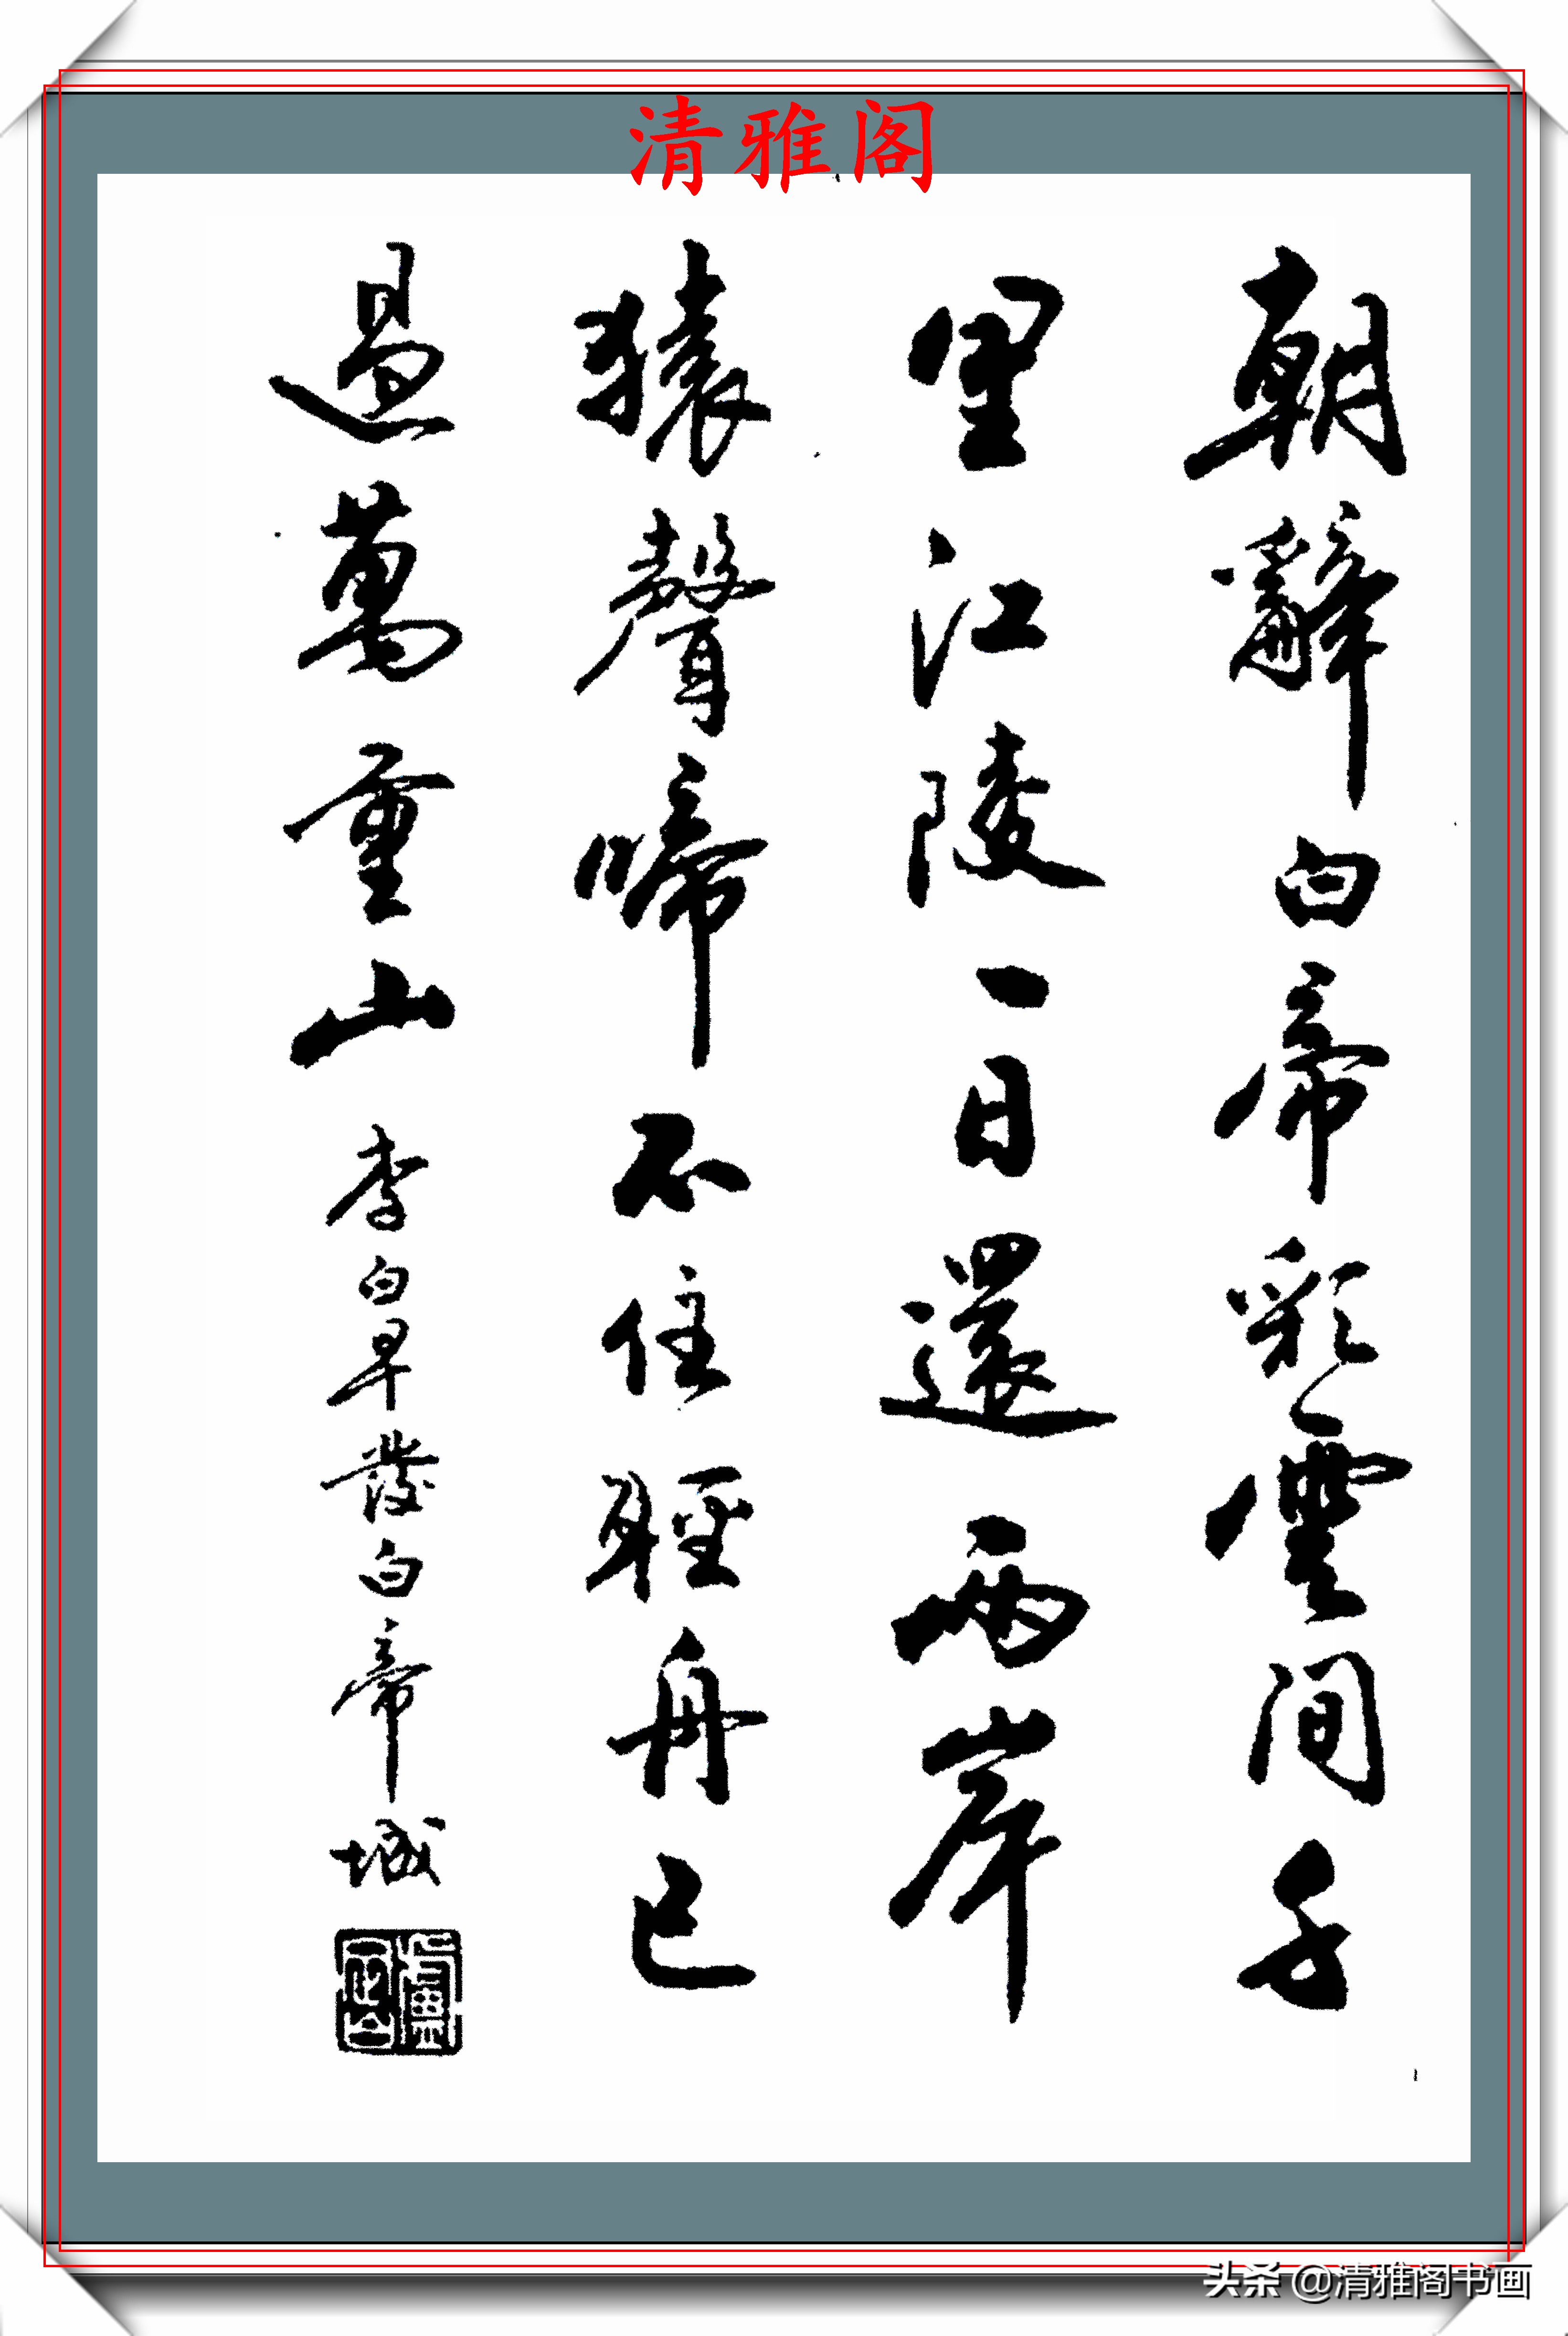 清雅阁
朝辭白帝彩雲間千
里江陵一日還兩岸
猿聲啼不住輕舟已
過萬重山 李白早發白帝城
头条 @清雅阁书画